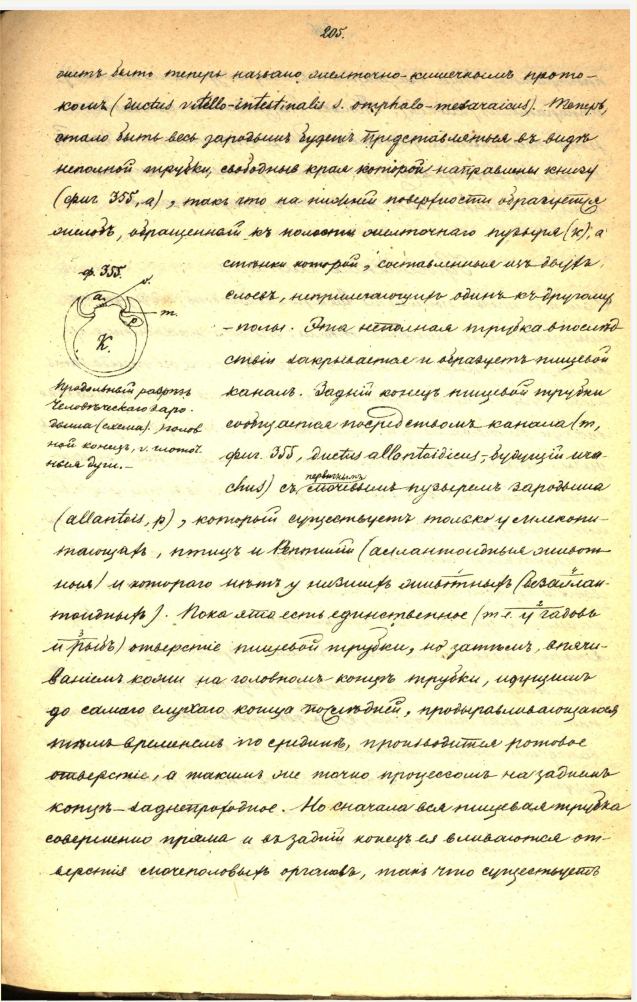 205.
жетъ быть теперь названо желточно-кишечнымъ прото-
комъ (ductus vitello-intestinalis s. omphalo-mesaraicus). Теперь,
стало быть весь зародышъ будетъ представляться въ видѣ
неполной трубки, свободные края которой направлены книзу
(фиг 355, а), такъ что на нижней поверхности образуется
жолобъ, обращенный къ полости желточнаго пузыря (к), а
стѣнки которой, составленные изъ двухъ
слоевъ, неприлегающихъ одинъ къ другому
-полы. Эта неполная трубка впослѣд
ствіи закрывается и образуетъ пищевой
каналъ. Задній конецъ пищевой трубки
сообщается посредствомъ канала (m,
фиг. 355, ductus allantoidicus, будущій ura
первичнымъ
chus) съ мочевымъ пузыремъ зародыша
ф. 355.
a.
v.
m.
p
K.
Продольный разрѣзъ
человѣческаго заро
дыша (схема). голов
ной конецъ, v. глоточ
ныя дуги.-
(allantois, p), который существуетъ только у млекопи-
тающихъ, птицъ и Рептилій (аллантоидныя живот
ныя) и котораго нѣтъ у низшихъ животныхъ (безаллан-
тоидныхъ). Пока эта есть единственное (т. е. у гадовъ
и рыбъ) отверстіе пищевой трубки, но затѣмъ, впячи-
ваніемъ кожи на головномъ концѣ трубки, идущимъ
до самаго глухаго конца послѣдней, продыравливающагося
тѣмъ временемъ по срединѣ, производится ротовое
отверстіе, а такимъ же точно процессомъ на заднемъ
концѣ-заднепроходное. Но сначала вся пищевая трубка
совершенно пряма и въ задній конецъ ея вливаются от-
верстія мочеполовыхъ органовъ, такъ что существуетъ